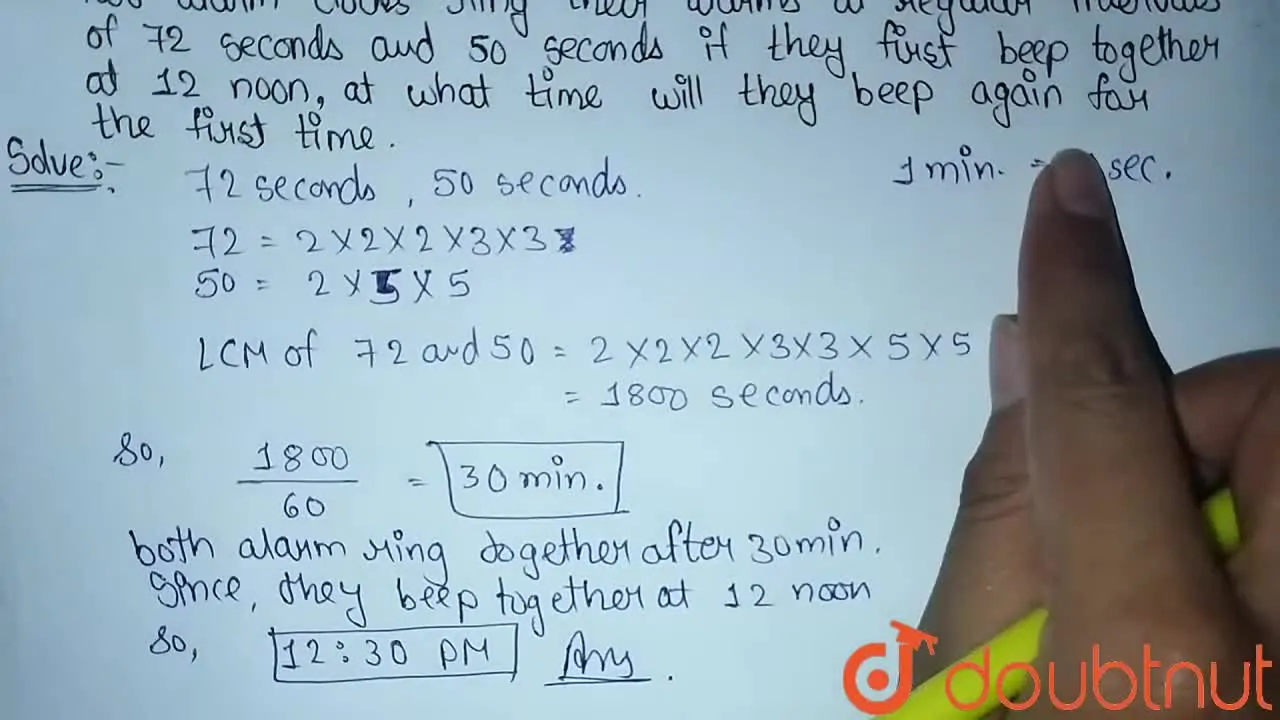 alarm clocks ring their alarms at regular intervals
of 72 seconds and 50 seconds if they first beep together
at 12 noon, at what time will they beep again for
the first time.
Solve:-
72 seconds, 50 seconds.
1 min. = sec.
72 = 2×2×2×3×3
50 = 2×5×5
LCM of 72 and 50 = 2×2×2×3×3×5×5
= 1800 seconds.
So, 1800/60 = 30 min.
both alarm ring together after 30 min.
Since, they beep together at 12 noon
So, 12:30 PM Ans.
doubtnut